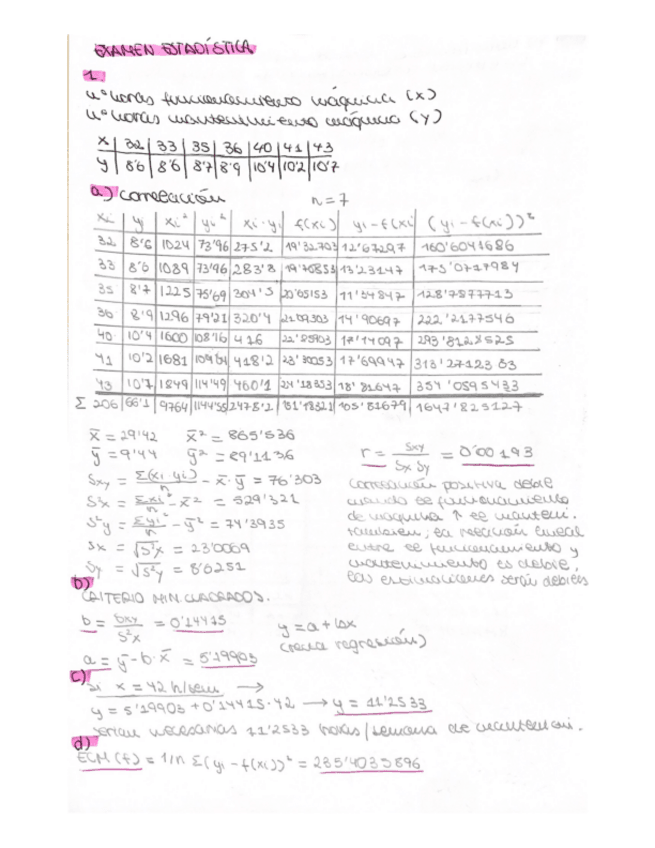 EXAMEN ESTADÍSTICA
1.
nº horas funcionamiento máquina (X)
nº horas mantenimiento máquina (Y)
X | 32 | 33 | 35 | 36 | 40 | 41 | 43
Y | 8'6 | 8'6 | 8'7 | 8'9 | 10'4 | 10'2 | 10'7
a) correlación n=7
xi | yi | xi² | yi² | xi·yi | f(xi) | yi-f(xi) | (yi-f(xi))²
32 | 8'6 | 1024 | 73'96 | 275'2 | 19'32703 | 12'67297 | 160'6041686
33 | 8'6 | 1089 | 73'96 | 283'8 | 19'70853 | 13'23147 | 175'0717984
35 | 8'7 | 1225 | 75'69 | 304'5 | 20'65153 | 11'34847 | 128'7877713
36 | 8'9 | 1296 | 79'21 | 320'4 | 21'09303 | 14'90697 | 222'2177546
40 | 10'4 | 1600 | 108'16 | 416 | 22'85903 | 17'14097 | 293'8128525
41 | 10'2 | 1681 | 104'04 | 418'2 | 23'30053 | 17'69947 | 313'2712353
43 | 10'7 | 1849 | 114'49 | 460'1 | 24'18353 | 18'81647 | 354'0595433
Σ 206 | 66'1 | 9764 | 1144'55 | 2478'2 | 151'18321 | 105'81679 | 1647'825127
x̄ = 29'42 x̄² = 865'536
ȳ = 9'44 ȳ² = 89'1136
Sxy = Σ(xi·yi)/n - x̄·ȳ = 76'303
S²x = Σxi²/n - x̄² = 529'321
S²y = Σyi²/n - ȳ² = 74'3935
Sx = √S²x = 23'0069
Sy = √S²y = 8'6251
r = Sxy/Sx Sy = 0'00193
correlación positiva débil
cuando el funcionamiento
de máquina ↑ el manteni.
también, la relación lineal
entre el funcionamiento y
mantenimiento es débil,
las estimaciones serán débiles
b)
CRITERIO MIN CUADRADOS.
b = Sxy/S²x = 0'14415
y = a+bx
(recta regresión)
a = ȳ - b·x̄ = 5'19903
c)
si x = 42 h/sem →
y = 5'19903 + 0'14415·42 → y = 11'2533
serían necesarias 11'2533 horas/semana de manteni.
d)
ECM (f) = 1/n Σ(yi - f(xi))² = 235'4035896